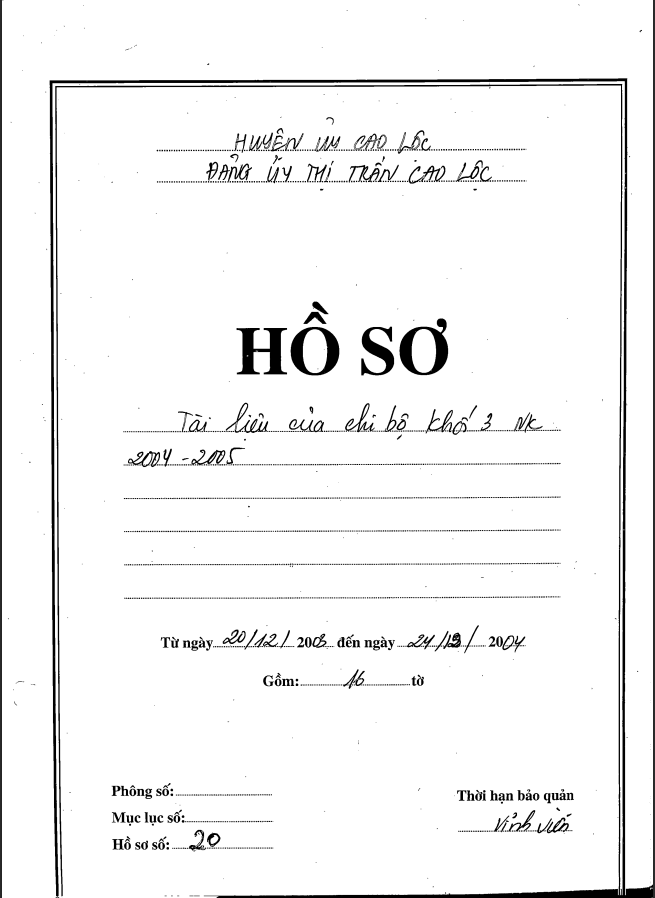 HUYỆN ỦY CAO LỘC
ĐẢNG ỦY THỊ TRẤN CAO LỘC
HỒ SƠ
Tài liệu của chi bộ khối 3 NK
2004 - 2005
Từ ngày 20/12/ 2003 đến ngày 24/12/ 2004
Gồm: 16 tờ
Phông số:
Mục lục số:
Hồ sơ số: 20
Thời hạn bảo quản
Vĩnh viễn